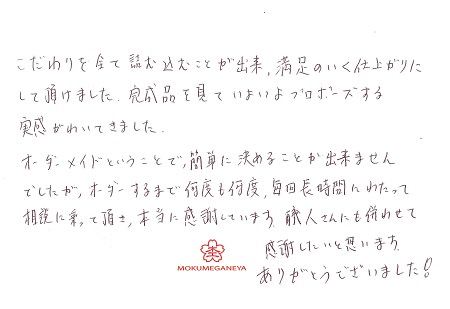 こだわりを全て詰む込むことが出来、満足のいく仕上がりに
して頂けました。完成品を見ていよいよプロポーズする
実感がわいてきました。
オーダーメイドということで、簡単に決めることが出来ません
でしたが、オーダーするまで何度も何度、毎回長時間にわたって
相談に乗って頂き、本当に感謝しています。職人さんにも併わせて
感謝したいと思います。
ありがとうございました!!
MOKUMEGANEYA